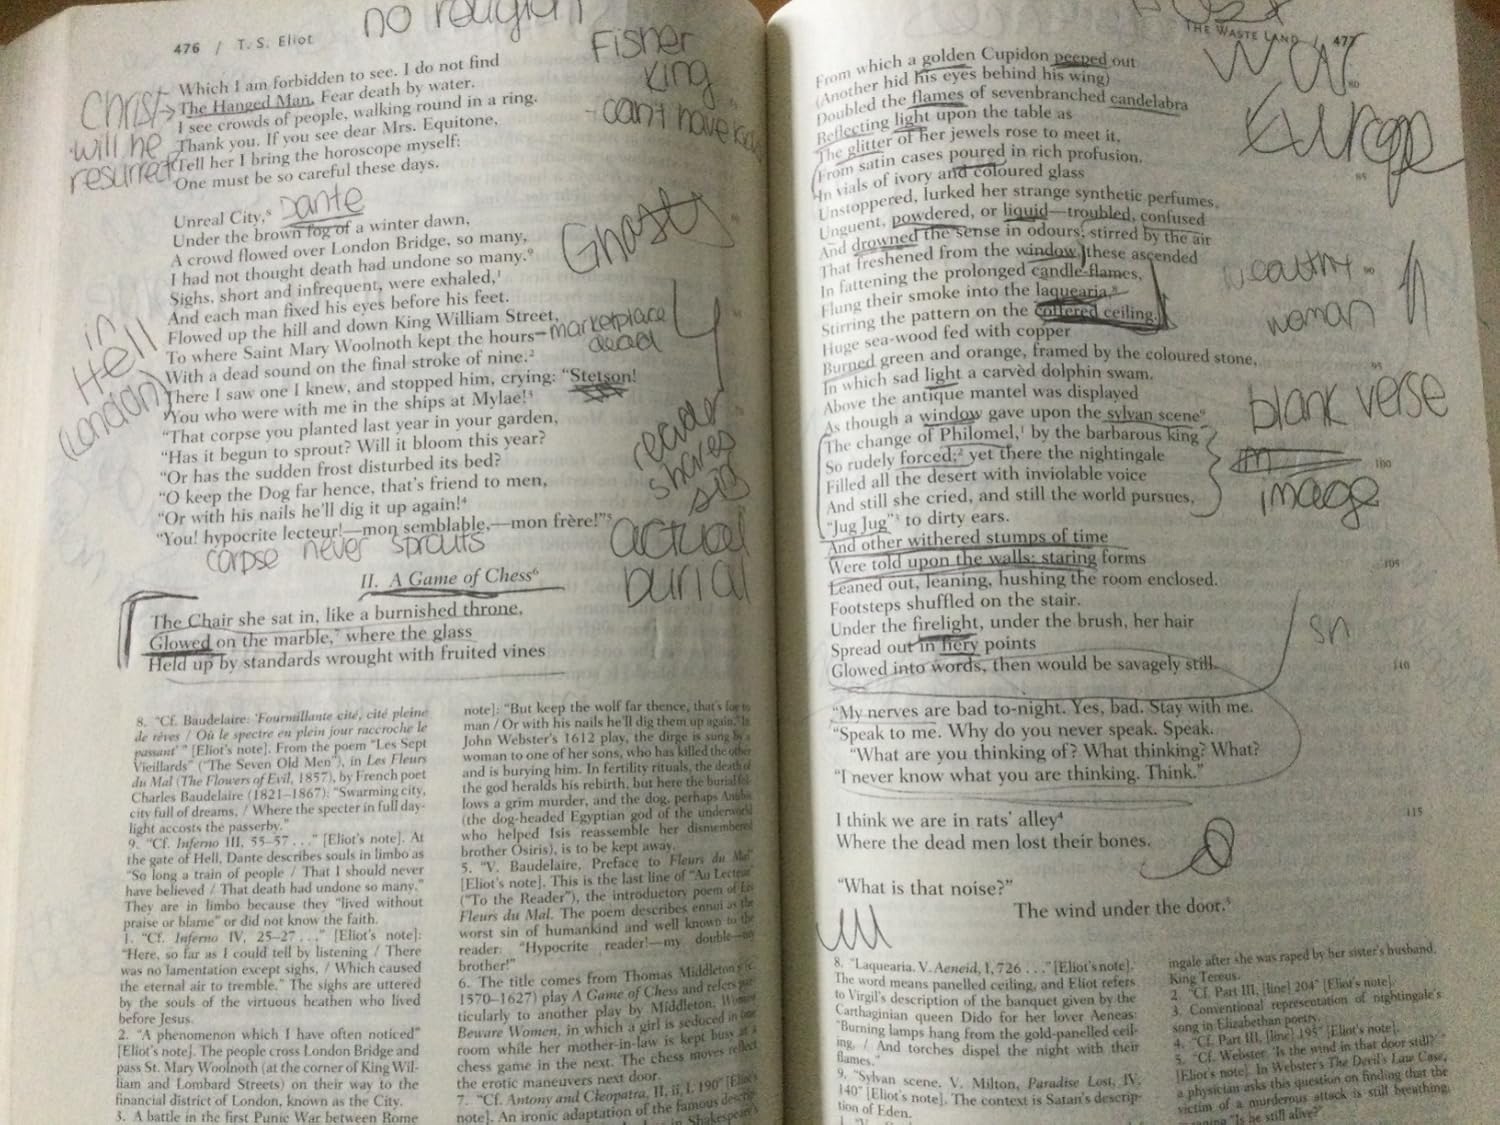 476 / T. S. Eliot
no religion
Which I am forbidden to see. I do not find
The Hanged Man. Fear death by water.
I see crowds of people, walking round in a ring.
Thank you. If you see dear Mrs. Equitone,
Tell her I bring the horoscope myself:
One must be so careful these days.
Christ
will he
resurrect
Fisher
King
- can't have
Unreal City,⁸
Dante
Under the brown fog of a winter dawn,
A crowd flowed over London Bridge, so many,
I had not thought death had undone so many.⁹
Sighs, short and infrequent, were exhaled,¹
And each man fixed his eyes before his feet.
Flowed up the hill and down King William Street,
To where Saint Mary Woolnoth kept the hours
With a dead sound on the final stroke of nine.²
There I saw one I knew, and stopped him, crying: "Stetson!
"You who were with me in the ships at Mylae!³
"That corpse you planted last year in your garden,
"Has it begun to sprout? Will it bloom this year?
"Or has the sudden frost disturbed its bed?
"O keep the Dog far hence, that's friend to men,
"Or with his nails he'll dig it up again!⁴
"You! hypocrite lecteur!—mon semblable,—mon frère!"⁵
Ghastly
marketplace
dead
in
Hell
(London)
reader
shares
sin
actual
burial
corpse never sprouts
II. A Game of Chess⁶
The Chair she sat in, like a burnished throne,
Glowed on the marble,⁷ where the glass
Held up by standards wrought with fruited vines
8. "Cf. Baudelaire: 'Fourmillante cité, cité pleine
de rêves / Où le spectre en plein jour raccroche le
passant' " [Eliot's note]. From the poem "Les Sept
Vieillards" ("The Seven Old Men"), in Les Fleurs
du Mal (The Flowers of Evil, 1857), by French poet
Charles Baudelaire (1821–1867): "Swarming city,
city full of dreams, / Where the specter in full day-
light accosts the passerby."
9. "Cf. Inferno III, 55–57 . . ." [Eliot's note]. At
the gate of Hell, Dante describes souls in limbo as
"So long a train of people / That I should never
have believed / That death had undone so many."
They are in limbo because they "lived without
praise or blame" or did not know the faith.
1. "Cf. Inferno IV, 25–27 . . ." [Eliot's note]:
"Here, so far as I could tell by listening / There
was no lamentation except sighs, / Which caused
the eternal air to tremble." The sighs are uttered
by the souls of the virtuous heathen who lived
before Jesus.
2. "A phenomenon which I have often noticed"
[Eliot's note]. The people cross London Bridge and
pass St. Mary Woolnoth (at the corner of King Wil-
liam and Lombard Streets) on their way to the
financial district of London, known as the City.
3. A battle in the first Punic War between Rome
note]: "But keep the wolf far thence, that's foe to
man / Or with his nails he'll dig them up again." In
John Webster's 1612 play, the dirge is sung by a
woman to one of her sons, who has killed the other
and is burying him. In fertility rituals, the death of
the god heralds his rebirth, but here the burial fol-
lows a grim murder, and the dog, perhaps Anubis
(the dog-headed Egyptian god of the underworld
who helped Isis reassemble her dismembered
brother Osiris), is to be kept away.
5. "V. Baudelaire, Preface to Fleurs du Mal"
[Eliot's note]. This is the last line of "Au Lecteur"
("To the Reader"), the introductory poem of Les
Fleurs du Mal. The poem describes ennui as the
worst sin of humankind and well known to the
reader: "Hypocrite reader!—my double—my
brother!"
6. The title comes from Thomas Middleton's
1570–1627) play A Game of Chess and refers par-
ticularly to another play by Middleton, Women
Beware Women, in which a girl is seduced in one
room while her mother-in-law is kept busy at a
chess game in the next. The chess moves reflect
the erotic maneuvers next door.
7. "Cf. Antony and Cleopatra, II, ii, l. 190" [Eliot's
note]. An ironic adaptation of the famous descrip-
in Shakespeare's
THE WASTE LAND / 477
From which a golden Cupidon peeped out
(Another hid his eyes behind his wing)
Doubled the flames of sevenbranched candelabra
Reflecting light upon the table as
The glitter of her jewels rose to meet it,
From satin cases poured in rich profusion.
In vials of ivory and coloured glass
Unstoppered, lurked her strange synthetic perfumes,
Unguent, powdered, or liquid—troubled, confused
And drowned the sense in odours; stirred by the air
That freshened from the window, these ascended
In fattening the prolonged candle-flames,
Flung their smoke into the laquearia,⁸
Stirring the pattern on the coffered ceiling.
Huge sea-wood fed with copper
Burned green and orange, framed by the coloured stone,
In which sad light a carvèd dolphin swam.
Above the antique mantel was displayed
As though a window gave upon the sylvan scene⁹
The change of Philomel,¹ by the barbarous king
So rudely forced;² yet there the nightingale
Filled all the desert with inviolable voice
And still she cried, and still the world pursues,
"Jug Jug"³ to dirty ears.
And other withered stumps of time
Were told upon the walls; staring forms
Leaned out, leaning, hushing the room enclosed.
Footsteps shuffled on the stair.
Under the firelight, under the brush, her hair
Spread out in fiery points
Glowed into words, then would be savagely still.
80
85
90
95
100
105
110
115
Europe
wealthy
woman
blank verse
image
"My nerves are bad to-night. Yes, bad. Stay with me.
"Speak to me. Why do you never speak. Speak.
"What are you thinking of? What thinking? What?
"I never know what you are thinking. Think."
I think we are in rats' alley⁴
Where the dead men lost their bones.
"What is that noise?"
The wind under the door.⁵
8. "Laquearia. V. Aeneid, I, 726 . . ." [Eliot's note].
The word means panelled ceiling, and Eliot refers
to Virgil's description of the banquet given by the
Carthaginian queen Dido for her lover Aeneas:
"Burning lamps hang from the gold-panelled ceil-
ing, / And torches dispel the night with their
flames."
9. "Sylvan scene. V. Milton, Paradise Lost, IV,
140" [Eliot's note]. The context is Satan's descrip-
tion of Eden.
ingale after she was raped by her sister's husband,
King Tereus.
2. "Cf. Part III, [line] 204" [Eliot's note].
3. Conventional representation of nightingale's
song in Elizabethan poetry.
4. "Cf. Part III, [line] 195" [Eliot's note].
5. "Cf. Webster: 'Is the wind in that door still?' "
[Eliot's note]. In Webster's The Devil's Law Case,
a physician asks this question on finding that the
victim of a murderous attack is still breathing,
"Is he still alive?"